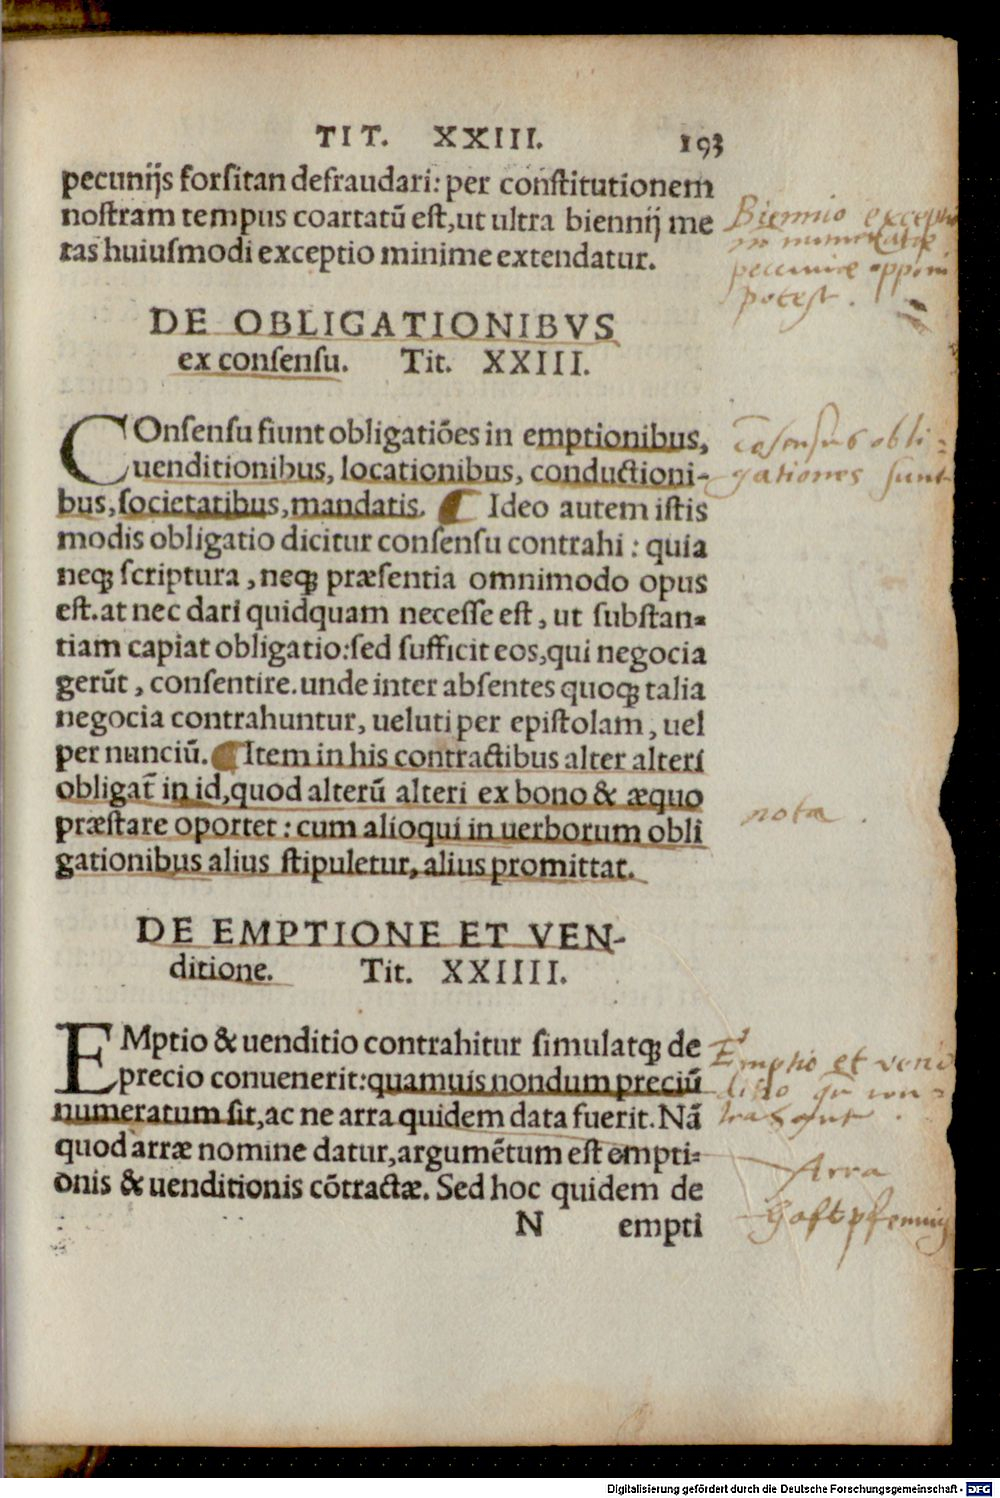 TIT. XXIII. 193
pecunijs forsitan defraudari: per constitutionem
nostram tempus coartatū est, ut ultra biennij me
tas huiusmodi exceptio minime extendatur.
Biennio exceptio
pecuniæ opponi
potest.
DE OBLIGATIONIBVS
ex consensu. Tit. XXIII.
COnsensu fiunt obligatiões in emptionibus,
uenditionibus, locationibus, conductioni-
bus, societatibus, mandatis. ¶ Ideo autem istis
modis obligatio dicitur consensu contrahi : quia
neqꝫ scriptura, neqꝫ præsentia omnimodo opus
est. at nec dari quidquam necesse est, ut substan-
tiam capiat obligatio: sed sufficit eos, qui negocia
gerūt, consentire. unde inter absentes quoqꝫ talia
negocia contrahuntur, ueluti per epistolam, uel
per nunciū. ¶ Item in his contractibus alter alteri
obligat̄ in id, quod alterū alteri ex bono & æquo
præstare oportet : cum alioqui in uerborum obli
gationibus alius stipuletur, alius promittat.
obli-
gationes sunt
nota.
DE EMPTIONE ET VEN-
ditione. Tit. XXIIII.
EMptio & uenditio contrahitur simulatqꝫ de
precio conuenerit: quamuis nondum preciū
numeratum sit, ac ne arra quidem data fuerit. Nā
quod arræ nomine datur, argumētum est empti-
onis & uenditionis cōtractæ. Sed hoc quidem de
N empti
Emptio et ven
Arra
Digitalisierung gefördert durch die Deutsche Forschungsgemeinschaft - DFG